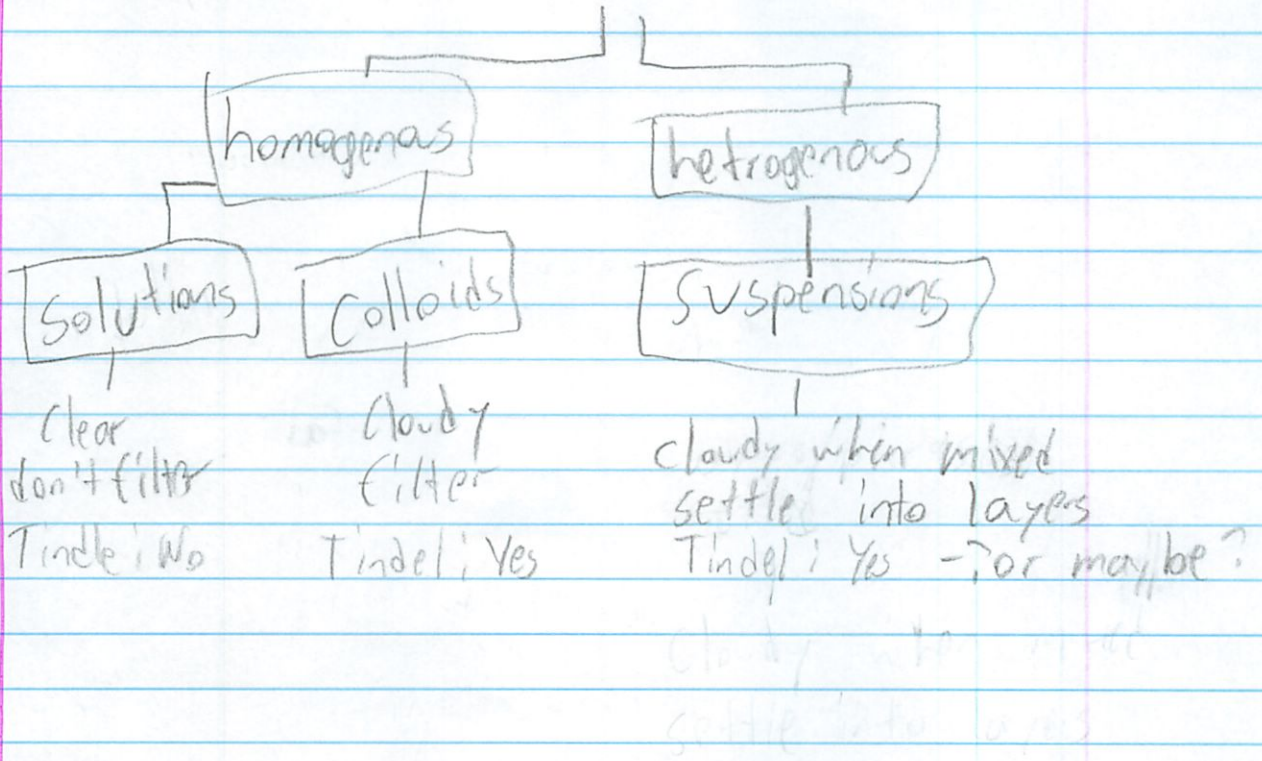 homogenous
hetrogenous
Solutions
Colloids
Suspensions
Clear
don't filter
Tindle: No
Cloudy
filter
Tindel: Yes
cloudy when mixed
settle into layers
Tindel: Yes -? or maybe?
Cloudy when mixed
settle into layers